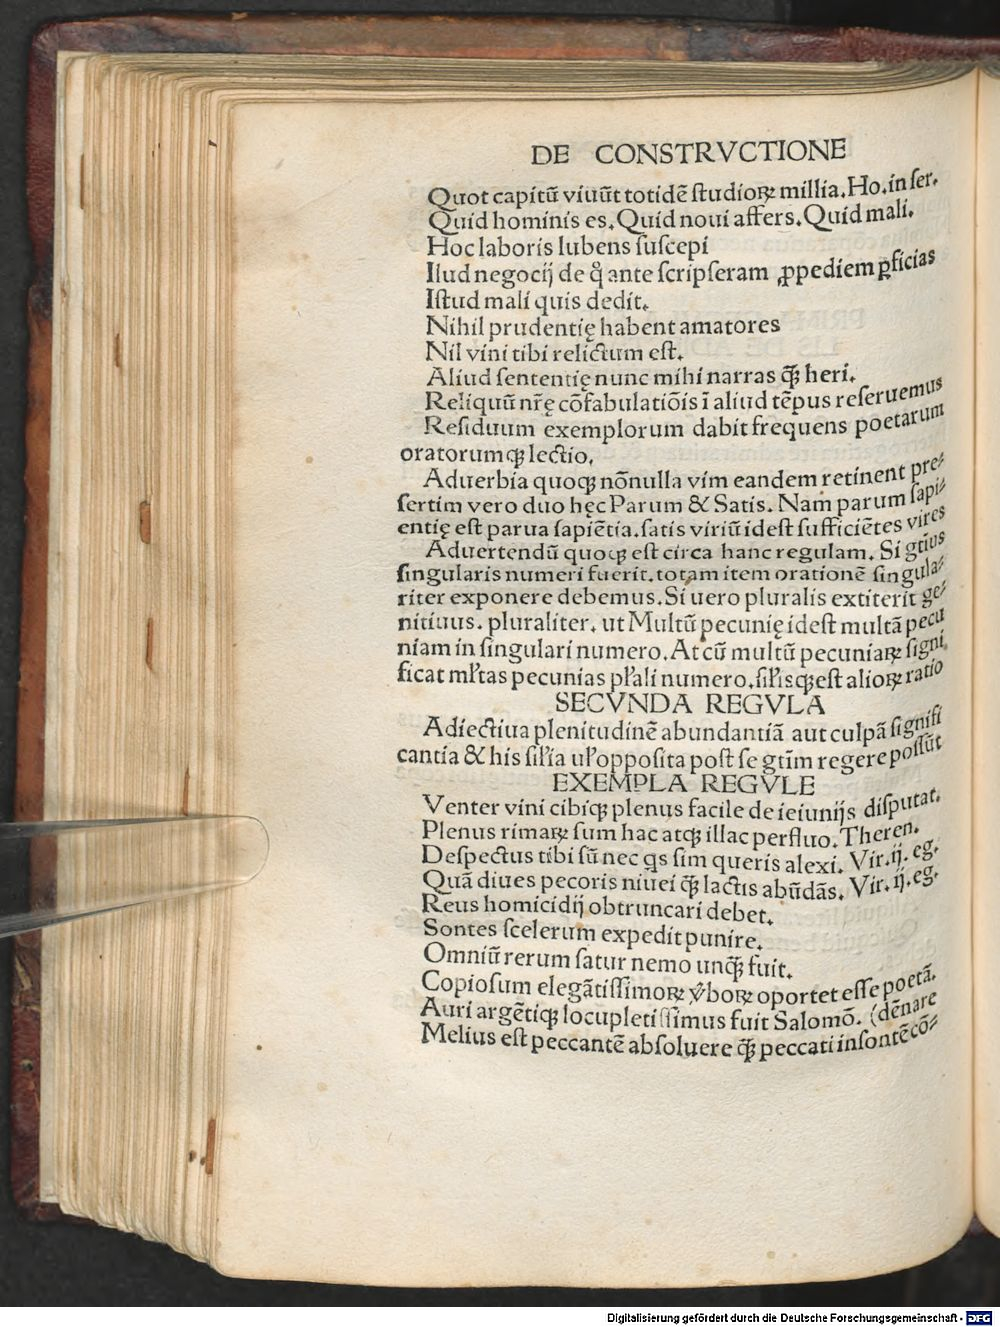 DE CONSTRVCTIONE
Quot capitū viuūt totidē ſtudioꝝ millia. Ho. in ſer.
Quid hominis es. Quid noui affers. Quid mali.
Hoc laboris lubens ſuſcepi
Illud negocij de q̊ ante ſcripſeram ꝓpediem ꝑficias
Iſtud mali quis dedit.
Nihil prudentię habent amatores
Nil vini tibi relictum eſt.
Aliud ſententię nunc mihi narras q̄ꝫ heri.
Reliquū nr̄ę cōfabulatiōis ī aliud tēpus reſeruemus
Reſiduum exemplorum dabit frequens poetarum
oratorumqꝫ lectio.
Aduerbia quoqꝫ nōnulla vim eandem retinent pre⸗
ſertim vero duo hęc Parum & Satis. Nam parum ſapi⸗
entię eſt parua ſapiētia. ſatis viriū ideſt ſufficiētes vires
Aduertendū quoqꝫ eſt circa hanc regulam. Si gtīus
ſingularis numeri fuerit. totam item orationē ſingula⸗
riter exponere debemus. Si uero pluralis extiterit ge⸗
nitiuus. pluraliter. ut Multū pecunię ideſt multā pecu
niam in ſingulari numero. At cū multū pecuniaꝝ ſigni
ficat mƚtas pecunias pƚali numero. ſiƚisqꝫ eſt alioꝝ ratio
SECVNDA REGVLA
Adiectiua plenitudinē abundantiā aut culpā ſignifi
cantia & his ſiƚia uƚ oppoſita poſt ſe gtīm regere poſſūt
EXEMPLA REGVLE
Venter vini cibiqꝫ plenus facile de ieiunijs diſputat.
Plenus rimaꝝ ſum hac atqꝫ illac perfluo. Theren.
Deſpectus tibi ſū nec qͥs ſim queris alexi. Vir. ij. eg.
Quā diues pecoris niuei q̄ꝫ lactis abūdās. Vir. ij. eg.
Reus homicidij obtruncari debet.
Sontes ſcelerum expedit punire.
Omniū rerum ſatur nemo unq̄ꝫ fuit.
Copioſum elegātiſſimoꝝ v̓boꝝ oportet eſſe poetā.
Auri argētiqꝫ locupletiſſimus fuit Salomō. (dēnare
Melius eſt peccantē abſoluere q̄ꝫ peccati inſontē cō⸗
Digitalisierung gefördert durch die Deutsche Forschungsgemeinschaft - DFG